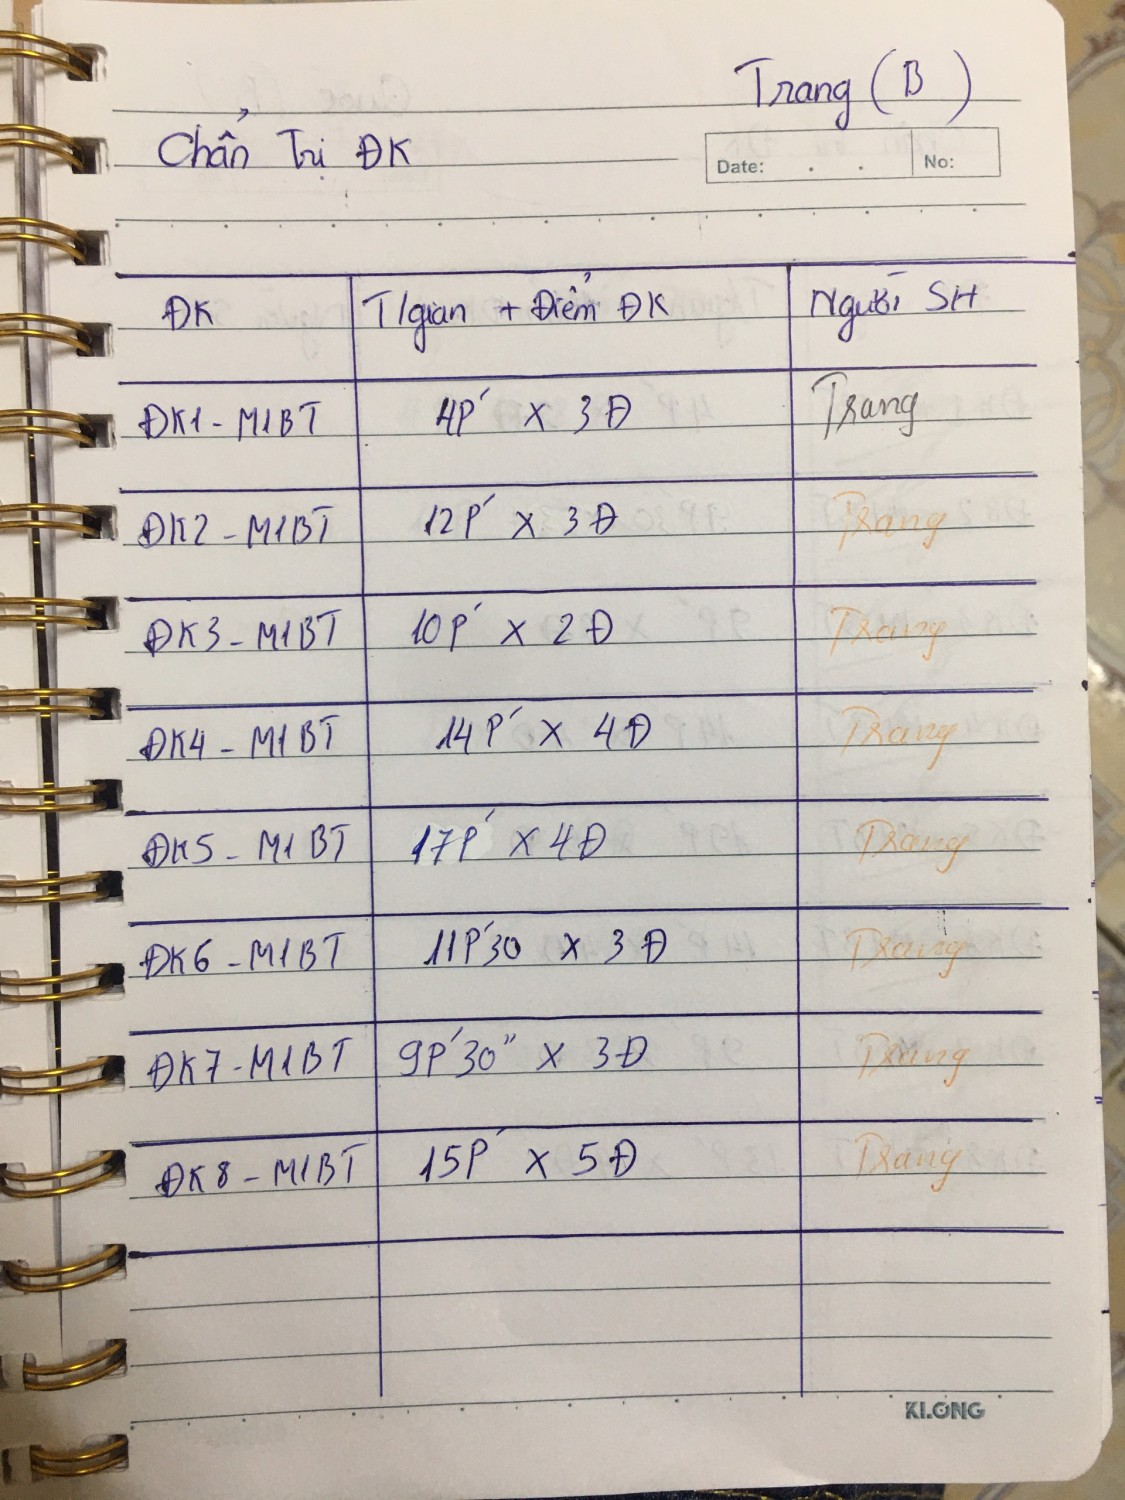 Trang (B)
Chẩn Trị ĐK
Date: . . No:
ĐK T/gian + Điểm ĐK Người SH
ĐK1 - M1BT 4P' x 3Đ Trang
ĐK2 - M1BT 12P' x 3Đ Trang
ĐK3 - M1BT 10P' x 2Đ Trang
ĐK4 - M1BT 14P' x 4Đ Trang
ĐK5 - M1BT 17P' x 4Đ Trang
ĐK6 - M1BT 11P'30 x 3Đ Trang
ĐK7 - M1BT 9P'30" x 3Đ Trang
ĐK8 - M1BT 15P' x 5Đ Trang
KLONG